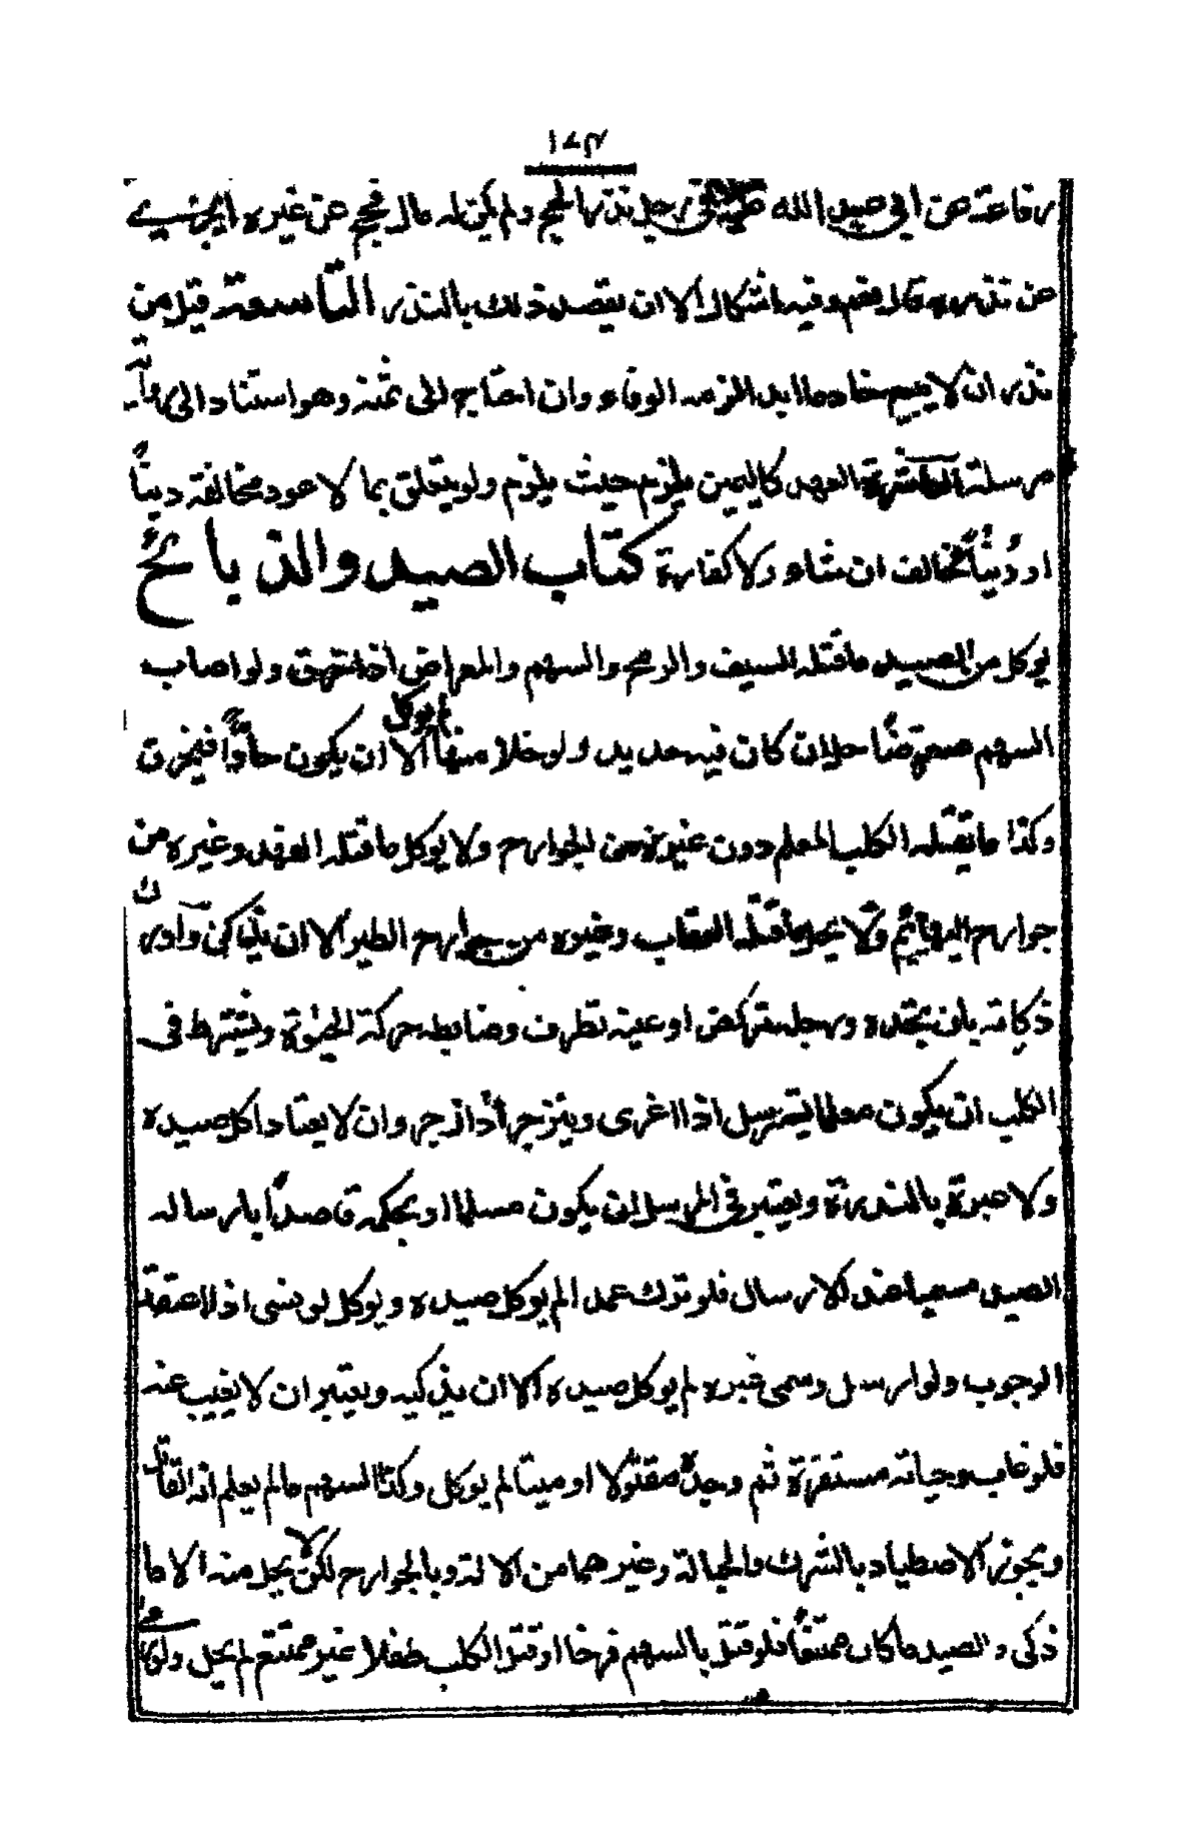 ١٨٣
رفاعة عن ابي عبد الله في رجل نذر الحج ولم يكن له مال فحج عن غيره ايجزي
عن نذره قال نعم وفيه اشكال الا ان يقصد ذلك بالنذر التاسعة قيل من
نذر ان لا يبيع خادما ابدا لزمه الوفاء وان احتاج الى ثمنه وهو استناد الى رواية
مرسلة العاشرة العهد كاليمين يلزم حيث يلزم ولو تعلق بما لا عود مخالفته دينا
او دنيا خالف ان شاء ولا كفارة كتاب الصيد والذبائح
يوكل من الصيد ما قتله السيف والرمح والسهم والمعراض اذا خرق ولو اصاب
السهم معترضا حل ان كان فيه حديد ولو خلا منها لم يوكل الا ان يكون حادا فيخرق
وكذا ما يقتله الكلب المعلم دون غيره من الجوارح ولا يوكل ما قتله الفهد وغيره من
جوارح البهائم ولا يحل ما قتله العقاب وغيره من جوارح الطير الا ان يذكى وادراك
ذكاته بان يجده ورجله تركض او عينه تطرف وضابطه حركة الحيوة ويشترط في
الكلب ان يكون معلما يسترسل اذا اغرى وينزجر اذا زجر وان لا يعتاد اكل صيده
ولا عبرة بالندرة ويعتبر في المرسل ان يكون مسلما او بحكمه قاصدا بارساله
الصيد مسميا عند الارسال فلو ترك عمدا لم يوكل صيده ويوكل لو نسى اذا اعتقد
الوجوب ولو ارسل وسمى غيره لم يوكل صيده الا ان يذكيه ويعتبر ان لا يغيب عنه
فلو غاب وحياته مستقرة ثم وجده مقتولا او ميتا لم يوكل وكذا السهم ما لم يعلم انه القاتل
ويجوز الاصطياد بالشرك والحبالة وغيرهما من الالة وبالجوارح لكن لا يحل منه الا ما
ذكى والصيد ما كان ممتنعا فلو قتل بالسهم فرخا او قتل الكلب طفلا غير ممتنع لم يحل ولو